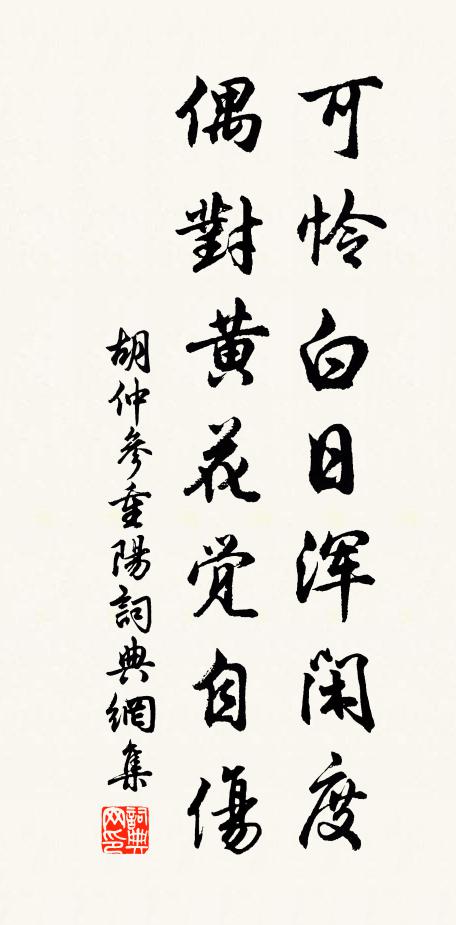 可怜白日浑闲度
偶對黄花觉自傷
胡仲參重陽詞典網集
詞典网印